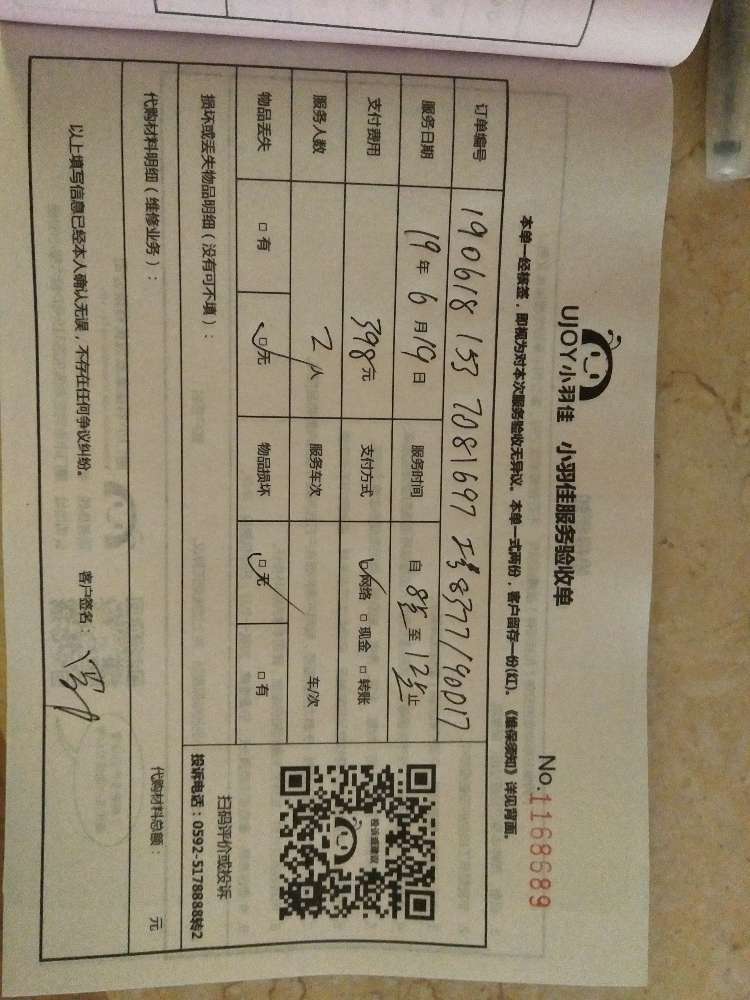 UJOY小羽佳 小羽佳服务验收单
No.1168689
本单一经核签，即视为对本次服务验收无异议。本单一式两份，客户留存一份(红)。《维保须知》详见背面。
订单编号 190618 153 7081697 8377/90017
服务日期 19年6月19日 服务时间 自 8 至 12 止
支付费用 398元 支付方式 网络 现金 转账
服务人数 2人 服务车次 车/次
物品丢失 有 无 物品损坏 无 有
损坏或丢失物品明细（没有可不填）：
投诉或建议
扫码评价或投诉
投诉电话：0592-5178888转2
代购材料明细（维修业务）： 代购材料总额： 元
以上填写信息已经本人确认无误，不存在任何争议纠纷。 客户签名：